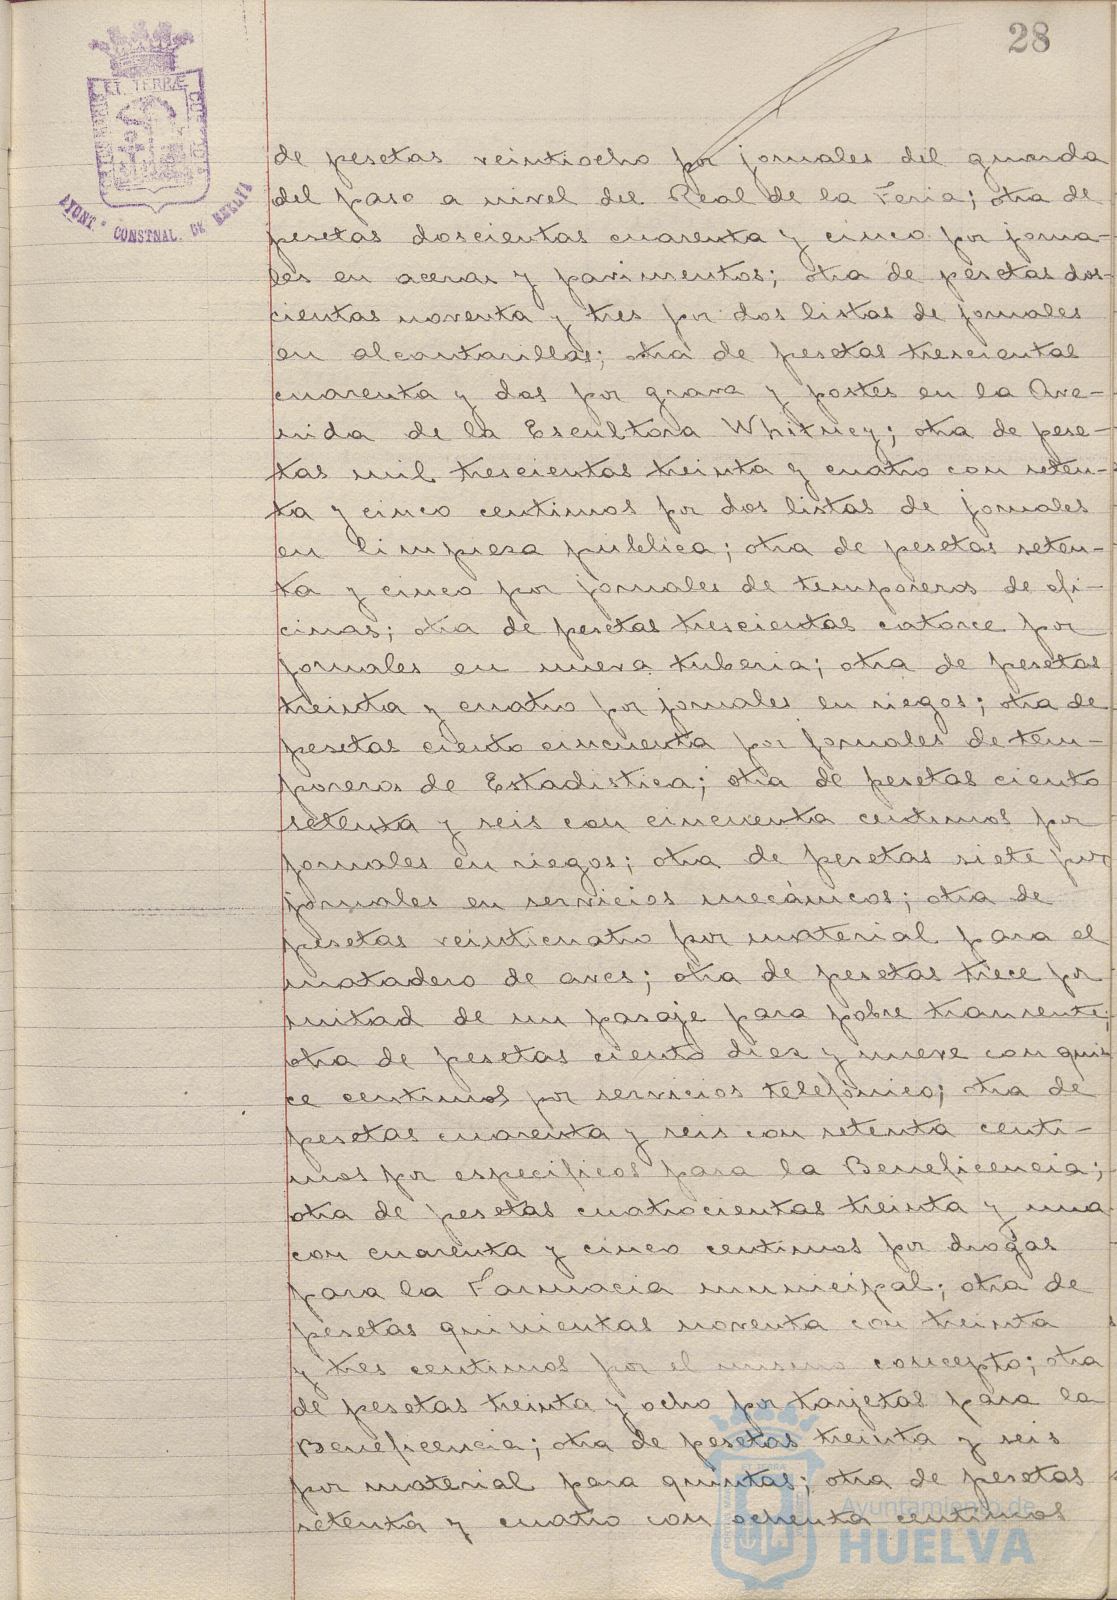 28
ET TERRÆ
AYUNT.º CONSTNAL. DE HUELVA
de pesetas veintiocho por jornales del guarda
del paso a nivel del Real de la Feria; otra de
pesetas doscientas cuarenta y cinco por jorna-
les en aceras y pavimentos; otra de pesetas dos-
cientas noventa y tres por dos listas de jornales
en alcantarillas; otra de pesetas trescientas
cuarenta y dos por grava y postes en la Ave-
nida de la Escultora Whitney; otra de pese-
tas mil trescientas treinta y cuatro con seten-
ta y cinco centimos por dos listas de jornales
en limpieza publica; otra de pesetas seten-
ta y cinco por jornales de temporeros de ofi-
cinas; otra de pesetas trescientas catorce por
jornales en nueva tuberia; otra de pesetas
treinta y cuatro por jornales en riegos; otra de
pesetas ciento cincuenta por jornales de tem-
poreros de Estadistica; otra de pesetas ciento
setenta y seis con cincuenta centimos por
jornales en riegos; otra de pesetas siete por
jornales en servicios mecánicos; otra de
pesetas veinticuatro por material para el
matadero de aves; otra de pesetas trece por
mitad de un pasaje para pobre transente;
otra de pesetas ciento diez y nueve con quin
ce centimos por servicios telefónico; otra de
pesetas cuarenta y seis con setenta centi-
mos por especificos para la Beneficencia;
otra de pesetas cuatrocientas treinta y una
con cuarenta y cinco centimos por drogas
para la Farmacia municipal; otra de
pesetas quinientas noventa con treinta
y tres centimos por el mismo concepto; otra
de pesetas treinta y ocho por tarjetas para la
Beneficencia; otra de pesetas treinta y seis
por material para quintas; otra de pesetas
setenta y cuatro con ochenta centimos
Ayuntamiento de
HUELVA